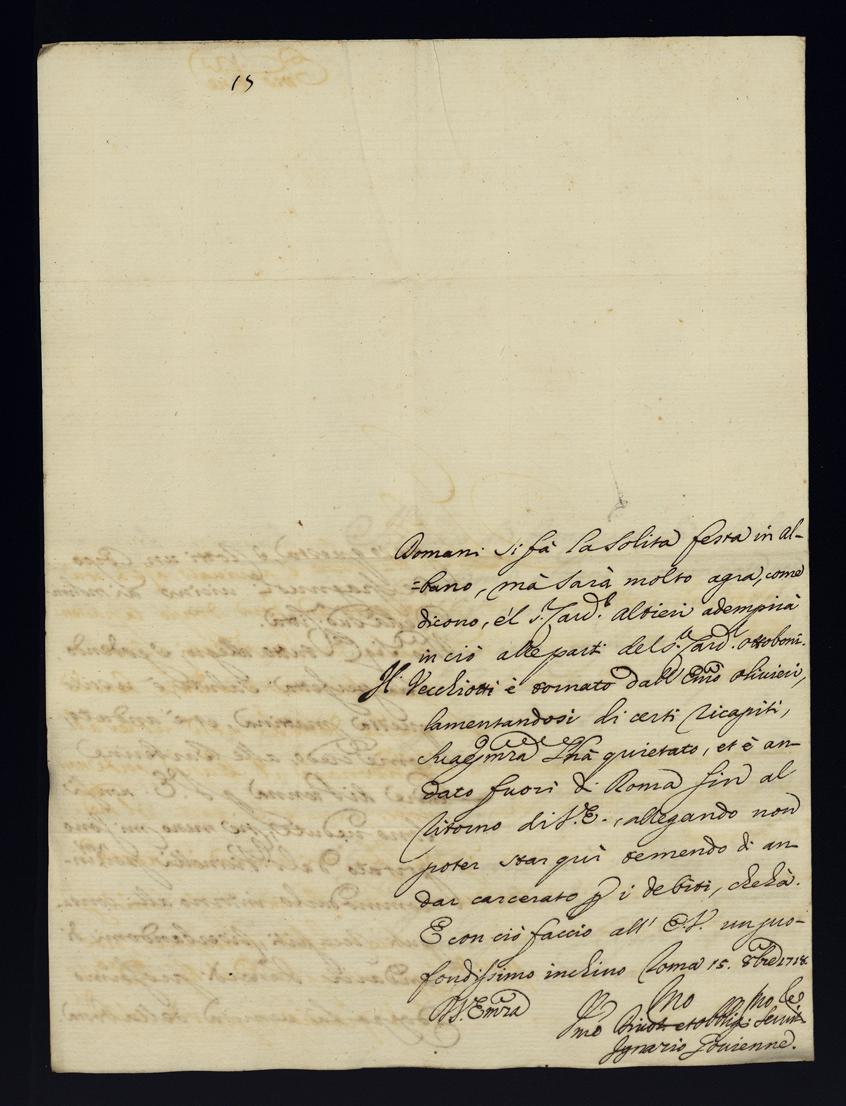 15
Domani si fà la solita festa in Al-
=bano, mà sarà molto agra, come
dicono, e'l S.r Card.l Altieri adempirà
in ciò alle parti del S.r Card.l Ottoboni.
Il Vecchiotti è tornato dall' Em̃o Olivieri,
lamentandosi di certi ricapiti,
Sua Em̃za l'hà quietato, et è an-
dato fuori di Roma fin al
ritorno di S. E., allegando non
poter star qui temendo di an-
dar carcerato p i debiti, che hà.
E con ciò faccio all' E.V. un pro-
fondissimo inchino Roma 15. 8bre 1718
D. V. Em̃za
Um̃o Divot.. et obblig. Servit.
Ignazio